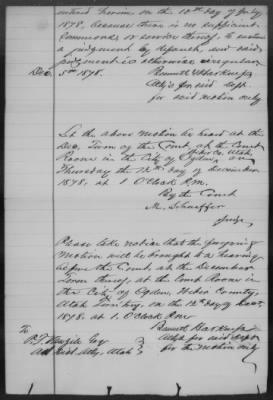 entered herein on the 10th day of July
1878, because there is no sufficient
summons, or service thereof, to sustain
a judgment by default, and said
judgment is otherwise irregular
Dec. 5th 1878. Bennett &
Atty's for said Deft.
for said motion only
Let the above motion be heard at the
Dec. Term of the Court, at the Court
Room in the City of Ogden, on
Thursday the 12th day of December
1878, at 1 O'Clock P.M.
By the Court
M. Schaeffer
Judge,
Please take notice that the foregoing
motion will be brought to a hearing
before the Court, at the December
Term thereof, at the Court Room in
the City of Ogden, Weber County,
Utah Territory, on the 12th day of Dec.
1878, at 1. O'Clock P.M.
Bennett
To Atty's for said Deft
Esq for the motion only
Dist. Atty, Utah